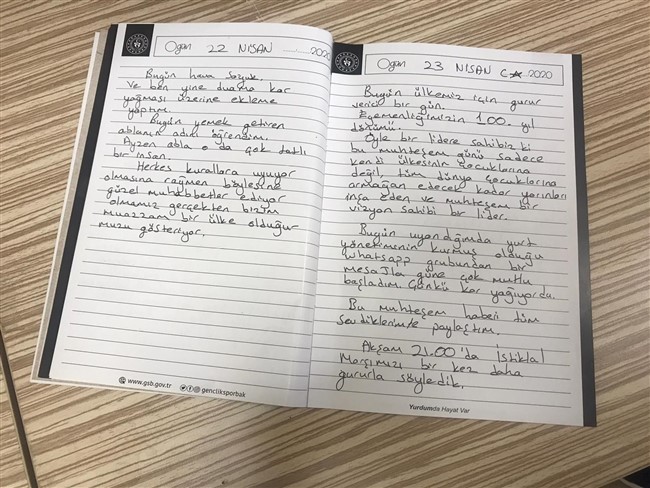 Ogün 22 NİSAN 2020
Bugün hava soğuk
ve ben yine duama kar
yağması üzerine ekleme
yaptım.
Bugün yemek getiren
ablanın adını öğrendim.
Ayzen abla o da çok tatlı
bir insan.
Herkes kurallara uyuyor
olmasına rağmen böylesine
güzel muhabbetler ediyor
olmamız gerçekten bizim
muazzam bir ülke olduğu
muzu gösteriyor.
www.gsb.gov.tr
gencliksporbak
Ogün 23 NİSAN C★ 2020
Bugün ülkemiz için gurur
verici bir gün.
Egemenliğimizin 100. yıl
dönümü.
Öyle bir lidere sahibiz ki
bu muhteşem günü sadece
kendi ülkesinin çocuklarına
değil, tüm dünya çocuklarına
armağan edecek kadar yarınları
inşa eden ve muhteşem bir
vizyon sahibi bir lider.
Bugün uyandığımda yurt
yönetiminin kurmuş olduğu
whatsapp grubundan bir
mesajla güne çok mutlu
başladım. Çünkü kar yağıyordu.
Bu muhteşem haberi tüm
sevdiklerimle paylaştım.
Akşam 21.00'da İstiklal
Marşımızı bir kez daha
gururla söyledik.
Yurdumda Hayat Var